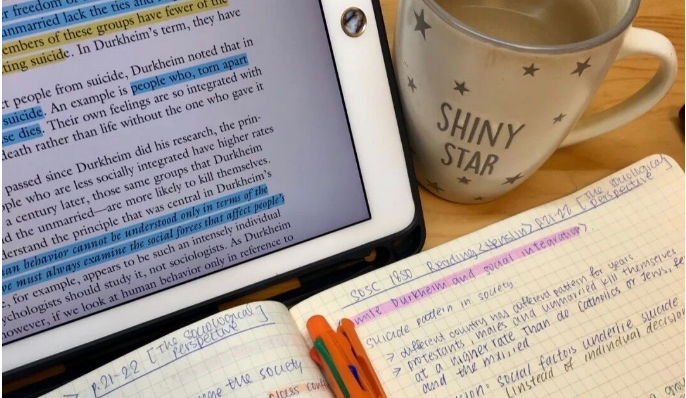 r freedom of
unmarried lack the ties and
embers of these groups have fewer of the
ting suicide. In Durkheim's term, they have
ct people from suicide, Durkheim noted that in
suicide. An example is people who, torn apart
se dies. Their own feelings are so integrated with
death rather than life without the one who gave it
passed since Durkheim did his research, the prin-
ople who are less socially integrated have higher rates
a century later, those same groups that Durkheim
d the unmarried—are more likely to kill themselves.
derstand the principle that was central in Durkheim's
an behavior cannot be understood only in terms of the
we must always examine the social forces that affect people's
e. for example, appears to be such an intensely individual
ychologists should study it, not sociologists. As Durkheim
owever, if we look at human behavior only in reference to
SHINY
STAR
SOSC 1850 Reading p.21-22 [The sociological
perspective]
Durkheim and social integration
suicide pattern in society
> different country has different pattern for years
> protestants, males and unmarried kill themselves
at a higher rate than do Catholics or Jews,
and the married
social factors underlie suicide
(instead of individual decision
p.21-22 [The sociological
perspective]
the society